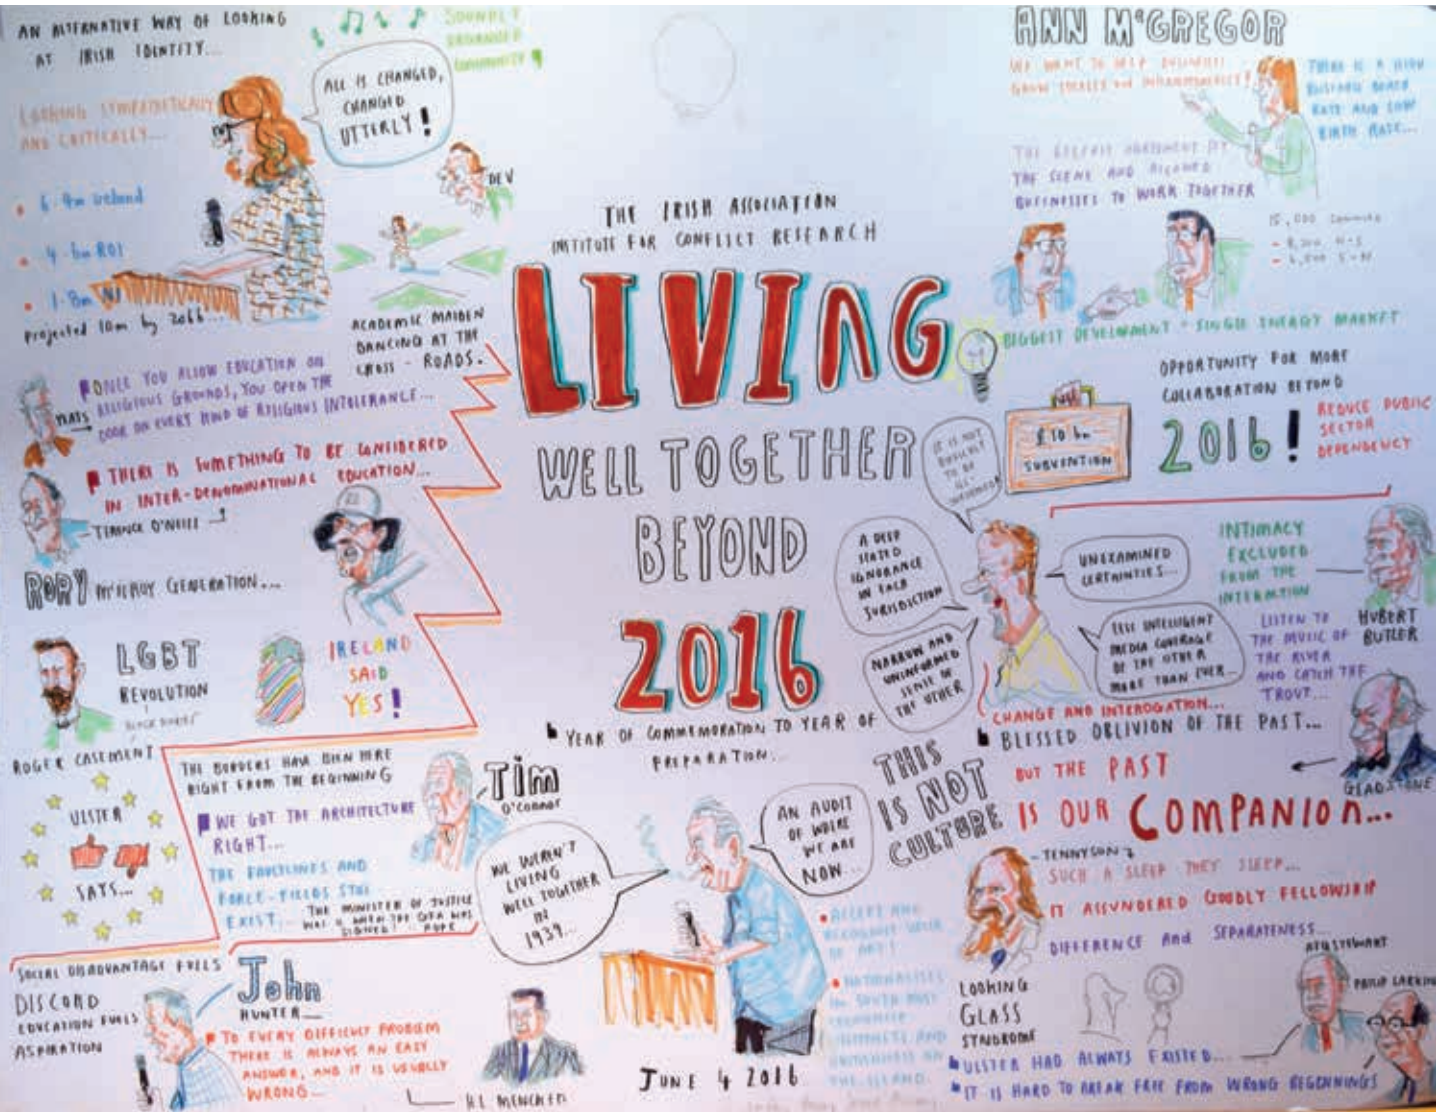 AN ALTERNATIVE WAY OF LOOKING
AT IRISH IDENTITY...
LOOKING SYMPATHETICALLY
AND CRITICALLY...
6.4m ireland
4.6m ROI
1.8m NI
projected 10m by 2066...
ALL IS CHANGED,
CHANGED
UTTERLY!
COMMUNITY
DEV
ACADEMIC MAIDEN
DANCING AT THE
CROSS-ROADS.
YEATS
ONCE YOU ALLOW EDUCATION ON
RELIGIOUS GROUNDS, YOU OPEN THE
DOOR ON EVERY KIND OF RELIGIOUS INTOLERANCE...
THERE IS SOMETHING TO BE CONSIDERED
IN INTER-DENOMINATIONAL EDUCATION...
TERENCE O'NEILL
RORY McILROY GENERATION...
LGBT
REVOLUTION
BLACK DIARIES
ROGER CASEMENT
IRELAND
SAID
YES!
ULSTER
SAYS...
THE BORDERS HAVE BEEN HERE
RIGHT FROM THE BEGINNING
WE GOT THE ARCHITECTURE
RIGHT...
THE FAULTLINES AND
FORCE-FIELDS STILL
EXIST...
THE MINISTER OF JUSTICE
WAS WHEN THE GFA WAS
SIGNED!
TIM
O'CONNOR
SOCIAL DISADVANTAGE FUELS
DISCORD
EDUCATION FUELS
ASPIRATION
John
HUNTER
TO EVERY DIFFICULT PROBLEM
THERE IS ALWAYS AN EASY
ANSWER, AND IT IS USUALLY
WRONG...
HL MENCKEN
THE IRISH ASSOCIATION
INSTITUTE FOR CONFLICT RESEARCH
LIVING
WELL TOGETHER
BEYOND
2016
YEAR OF COMMEMORATION TO YEAR OF
PREPARATION...
WE WEREN'T
LIVING
WELL TOGETHER
IN
1939...
AN AUDIT
OF WHERE
WE ARE
NOW...
JUNE 4 2016
THIS
IS NOT
CULTURE
ANN McGREGOR
WE WANT TO HELP BUSINESSES
GROW LOCALLY OR INTERNATIONALLY!
THERE IS A HIGH
BUSINESS DEATH
RATE AND LOW
BIRTH RATE...
THE BELFAST AGREEMENT SET
THE SCENE AND ALLOWED
BUSINESSES TO WORK TOGETHER
15,000
BIGGEST DEVELOPMENT - SINGLE ENERGY MARKET
£10 bn
SUBVENTION
OPPORTUNITY FOR MORE
COLLABORATION BEYOND
2016!
REDUCE PUBLIC
SECTOR
DEPENDENCY
IT IS NOT
DIFFICULT
TO BE
ILL-
INFORMED
A DEEP
SEATED
IGNORANCE
IN EACH
JURISDICTION
NARROW AND
UNINFORMED
SENSE OF
THE OTHER
UNEXAMINED
CERTAINTIES...
LESS INTELLIGENT
MEDIA COVERAGE
OF THE OTHER
MORE THAN EVER...
INTIMACY
EXCLUDED
FROM THE
INTERACTION
HUBERT
BUTLER
LISTEN TO
THE MUSIC OF
THE RIVER
AND CATCH THE
TROUT...
CHANGE AND INTEROGATION...
BLESSED OBLIVION OF THE PAST...
GLADSTONE
BUT THE PAST
IS OUR COMPANION...
TENNYSON
SUCH A SLEEP THEY SLEEP...
IT ASSUNDERED GOODLY FELLOWSHIP
DIFFERENCE AND SEPARATENESS...
LOOKING
GLASS
SYNDROME
ATQ STEWART
PHILIP LARKIN
ULSTER HAD ALWAYS EXISTED...
IT IS HARD TO BREAK FREE FROM WRONG BEGINNINGS